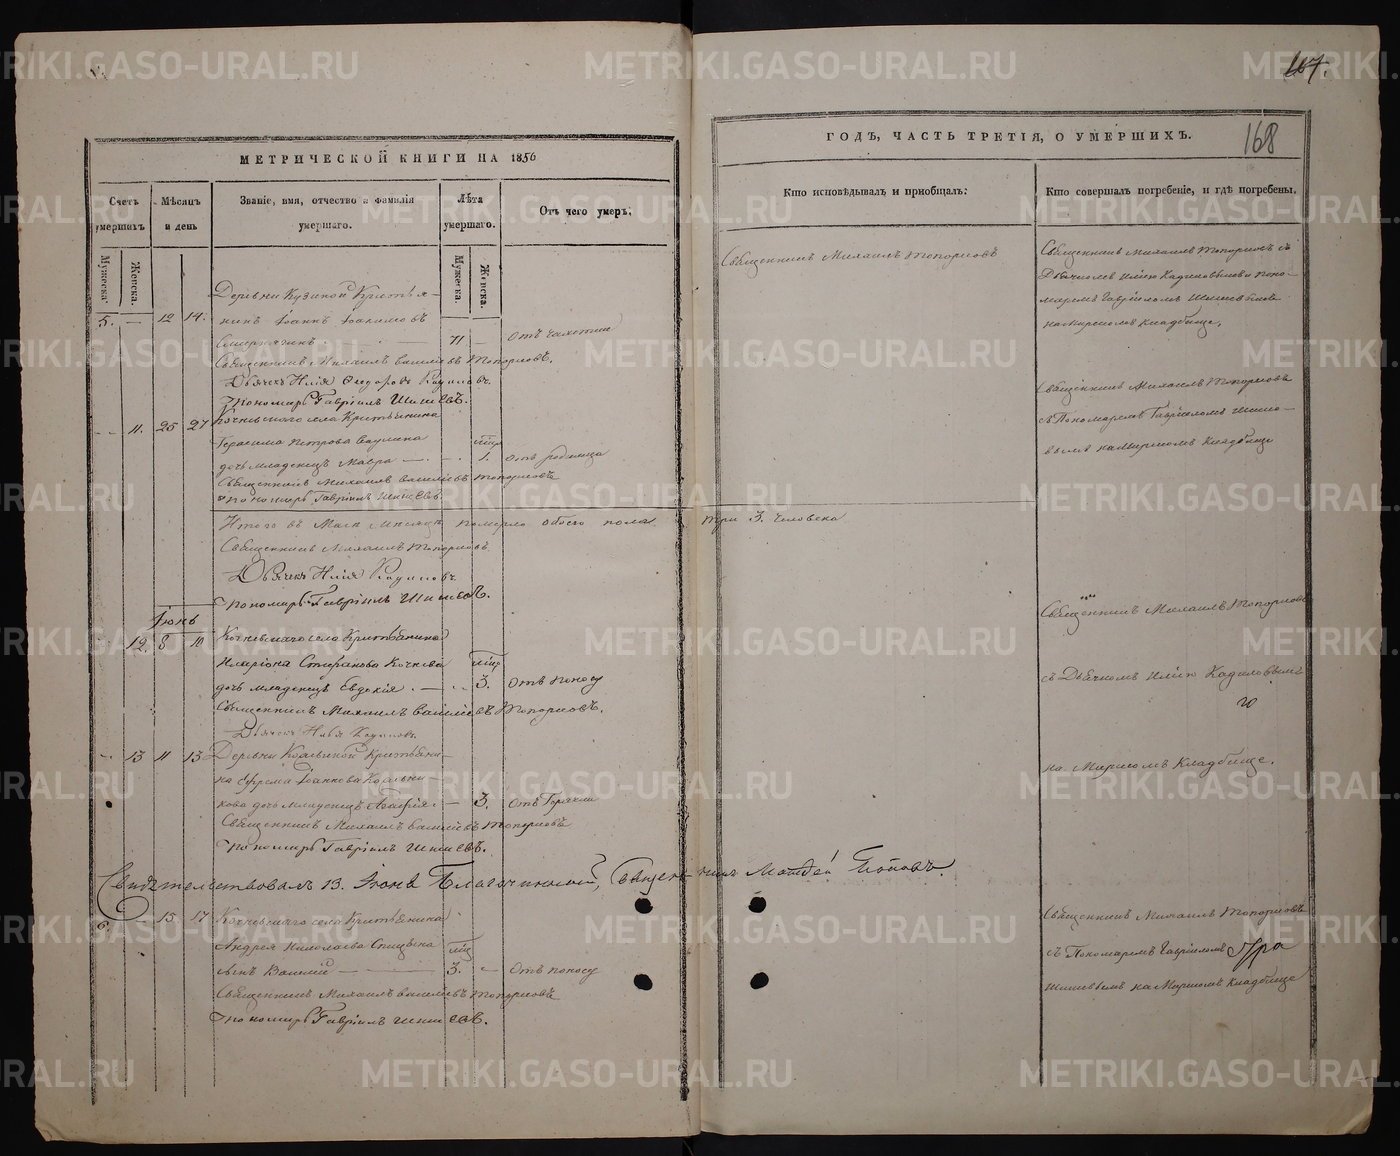 МЕТРИЧЕСКОЙ КНИГИ НА 1856
Счетъ умершихъ
Мѣсяцъ и день
Званіе, имя, отчество и фамилія умершаго.
Лѣта умершаго.
Отъ чего умеръ.
Мужеска.
Женска.
Мужеска.
Женска.
5. — 12 14.
Деревни Кузиной Крестья-
нинъ Іоаннъ Іоакимовъ
71 — Отъ чахотки
Священникъ Михаилъ Васильевъ Топорковъ.
Дьячекъ Илія Федоровъ
Пономарь Гавріилъ Шишевъ.
11. 25 27
Кочневскаго села Крестьянина
Герасима Петрова
дочь младенецъ Мавра — 1. Отъ родимца
Священникъ Михаилъ Васильевъ Топорковъ
Пономарь Гавріилъ Шишевъ.
Итого въ Маѣ Мѣсяцѣ померло обоего пола три 3. человека
Священникъ Михаилъ Топорковъ.
Дьячекъ Илія
Пономарь Гавріилъ Шишевъ.
Іюнь
12. 8 10
Кочневскаго села Крестьянина
Иларіона Стефанова Кочнева
дочь младенецъ Евдокія. — 3. Отъ поносу
Священникъ Михаилъ Васильевъ Топорковъ.
Дьячекъ Илья
13 11 13
Деревни Крестьяни-
на Ефрема
кова дочь младенецъ Агафія. — 3. Отъ Горячки
Священникъ Михаилъ Васильевъ Топорковъ
Пономарь Гавріилъ Шишевъ.
Свидѣтельствовалъ 13. Іюня Благочинный, Священникъ Матѳей Поповъ.
6. 15 17
Кочневскаго села Крестьянина
Андрея Николаева Спицына
сынъ Василій — 3. Отъ поносу
Священникъ Михаилъ Васильевъ Топорковъ
Пономарь Гавріилъ Шишевъ.
167.
168
ГОДЪ, ЧАСТЬ ТРЕТІЯ, О УМЕРШИХЪ.
Кто исповѣдывалъ и пріобщалъ:
Кто совершалъ погребеніе, и гдѣ погребены.
Священникъ Михаилъ Топорковъ
Священникъ Михаилъ Топорковъ съ
Дьячкомъ Иліею и Поно-
маремъ Гавріиломъ Шишевымъ
на Мирскомъ Кладбище,
Священникъ Михаилъ Топорковъ
съ Пономаремъ Гавріиломъ Шише-
вымъ на Мирскомъ Кладбище
Священникъ Михаилъ Топорковъ
съ Дьячкомъ Иліею
на Мирскомъ Кладбище.
Священникъ Михаилъ Топорковъ
съ Пономаремъ Гавріиломъ
Шишевымъ на Мирскомъ Кладбище
METRIKI.GASO-URAL.RU